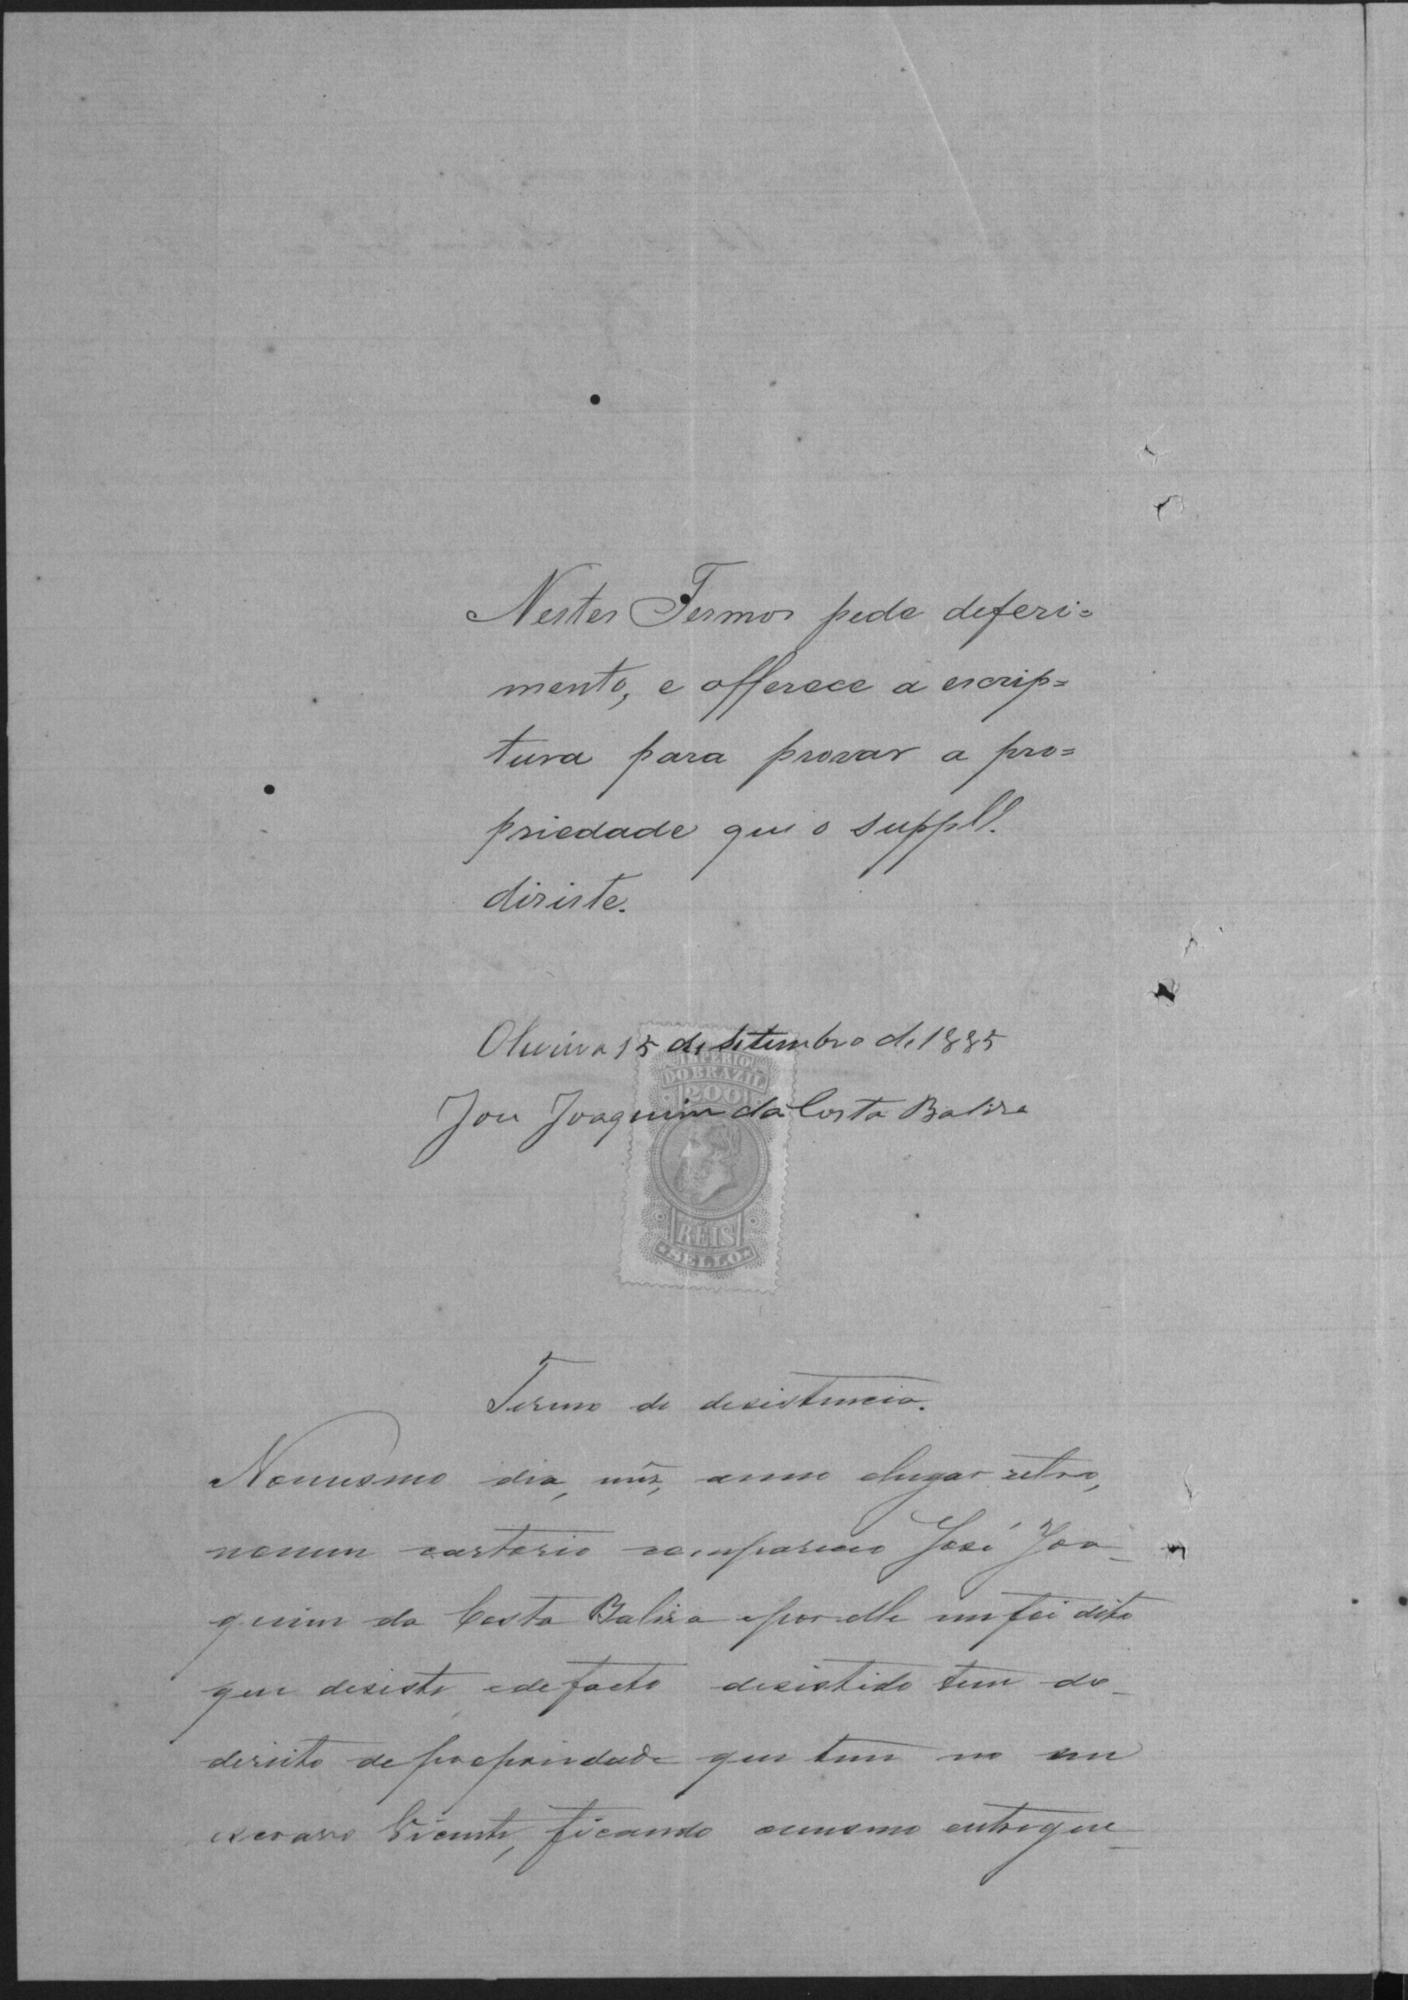 Nestes Termos pede deferi=
mento, e offerece a escrip=
tura para provar a pro=
priedade que o suppl.
disiste.
Oliveira 15 de Setembro de 1885
José Joaquim da Costa Baliza
IMPERIO
DO BRAZIL
200
REIS
SELLO
Termo de desistencia.
Nomesmo dia, mês, anno elugar retro,
nomeu cartorio compareceo José Joa-
quim da Costa Baliza eporelle mefoi dito
que desiste edefacto desistido tem do
direito depropriedade que tem no seu
escravo Vicente, ficando omesmo entregue